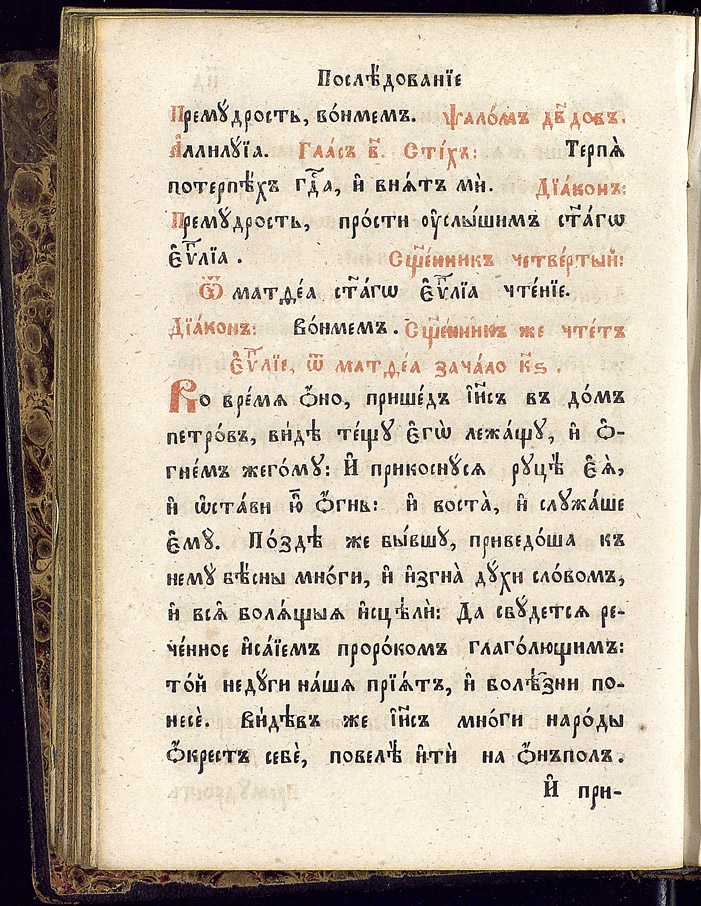 Послѣ́дованїе
Премꙋ́дрость, во́нмемъ. ѱало́мъ дв҃довъ.
А҆ллилꙋ́їа. Гла́съ в҃. Сті́хъ: Терпѧ̀
потерпѣ́хъ гдⷭ҇а, и҆ внѧ́тъ мѝ. Дїа́конъ:
Премꙋ́дрость, про́сти ᲂу҆слы́шимъ ст҃а́гѡ
є҆ѵⷢ҇лїа. Сщ҃е́нникъ четве́ртый:
Ѿ матѳе́а ст҃а́гѡ є҆ѵⷢ҇лїа чте́нїе.
Дїа́конъ: Во́нмемъ. Сщ҃е́нникъ же чте́тъ
є҆ѵⷢ҇лїе, ѿ матѳе́а зача́ло к҃ѕ.
Во вре́мѧ ѻ҆́но, прише́дъ і҆и҃съ въ до́мъ
петро́въ, ви́дѣ те́щꙋ є҆гѡ̀ лежа́щꙋ, и҆ ѻ҆-
гне́мъ жего́мꙋ: И҆ прикоснꙋ́сѧ рꙋцѣ̀ є҆ѧ̀,
и҆ ѡ҆ста́ви ю҆̀ ѻ҆́гнь: и҆ воста̀, и҆ слꙋжа́ше
є҆мꙋ̀. По́здѣ же бы́вшꙋ, приведо́ша къ
немꙋ̀ бѣ́сны мно́ги, и҆ и҆згна̀ дꙋ́хи сло́вомъ,
и҆ всѧ̀ болѧ́щыѧ и҆сцѣлѝ: Да сбꙋ́детсѧ ре-
че́нное и҆са́їемъ проро́комъ глаго́лющимъ:
то́й недꙋ́ги на́шѧ прїѧ́тъ, и҆ болѣ̑зни по-
несѐ. Ви́дѣвъ же і҆и҃съ мно́ги наро́ды
ѻ҆́крестъ себѐ, повелѣ̀ и҆тѝ на ѻ҆́нъполъ.
И҆ при-